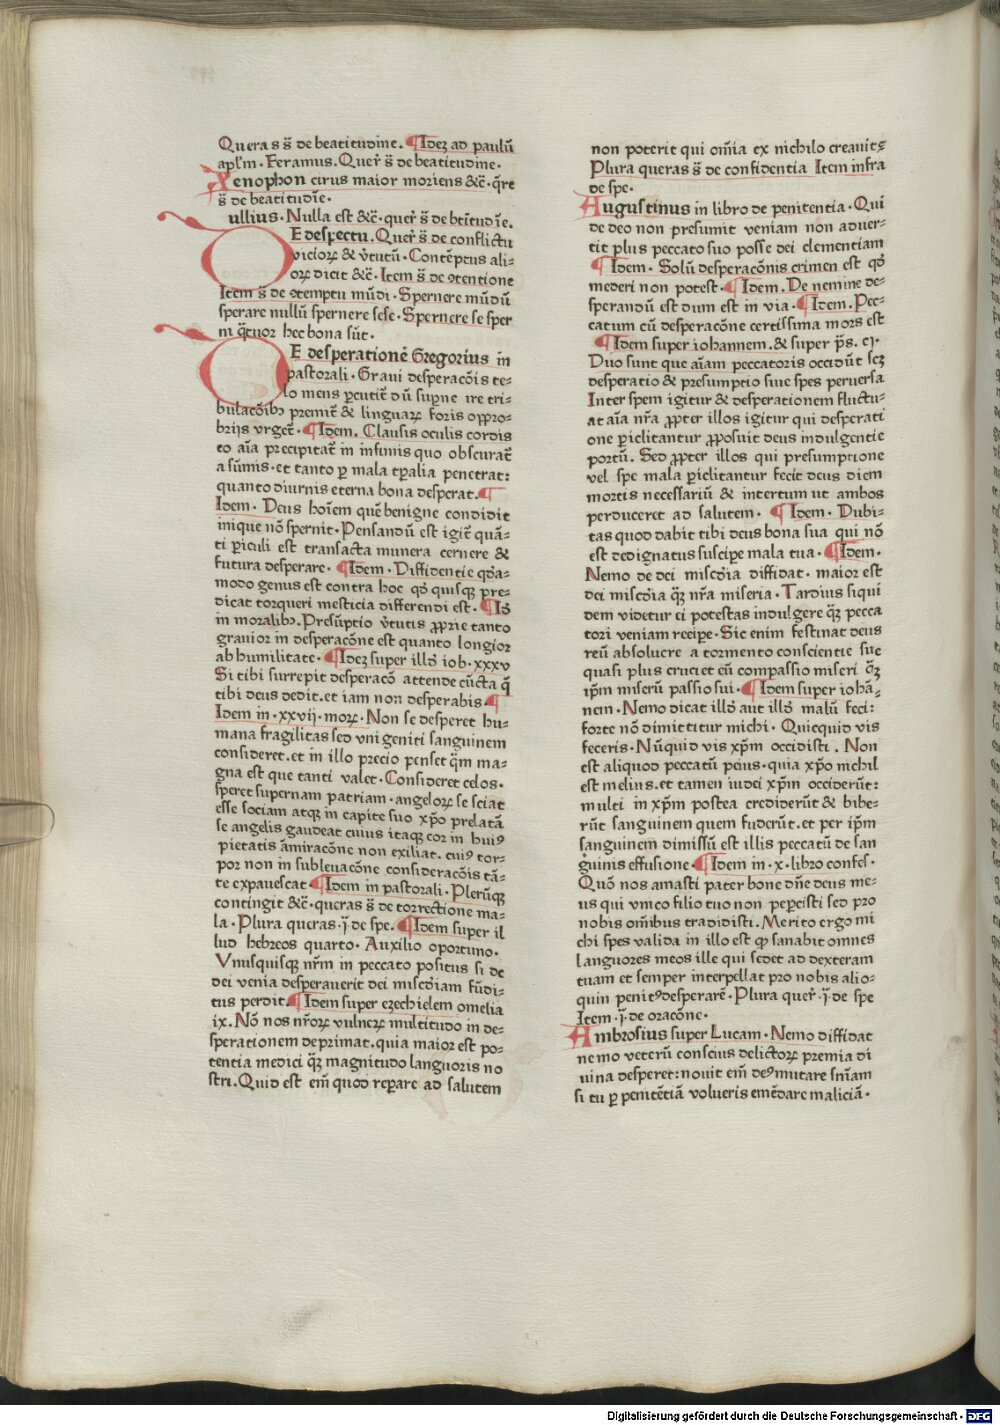 Queras s̄ de beatitudine. ¶ Idez ad paulū
apl'm. Feramus. Quer̄ s̄ de beatitudine.
Xenophon cirus maior moriens &c̄. q̄re
s̄ de beatitudīe.
ullius. Nulla est &c̄. quer̄ s̄ de bt̄itudīe.
DE despectu. Quer̄ s̄ de conflictu
vicioꝝ & v̄tutū. Contēptus ali-
oꝝ dicit &c̄. Item s̄ de ꝯtentione
Item s̄ de ꝯtemptu mūdi. Spernere mūdū
sperare nullū spernere sese. Spernere se sper
ni q̄tuor hec bona sūt.
DE desperationē Gregorius in
pastorali. Graui desperacōis te-
lo mens ꝑcutit̄ dū suꝑne ire tri-
bulacōibꝰ premit̄ & linguaꝝ foris oꝓpro-
brijs vrget̄. ¶ Idem. Clausis oculis cordis
eo aīa precipitat̄ in infimis quo obscurat̄
a sūmis. et tanto ꝑ mala tꝑalia penetrat:
quanto diurnis eterna bona desperat. ¶
Idem. Deus hoīem quē benigne condidit
inique nō spernit. Pensandū est igit̄ quā-
ti ꝑiculi est transacta munera cernere &
futura desperare. ¶ Idem. Diffidentie qd̄a-
modo genus est contra hoc qd̄ quisqꝫ pre-
dicat torqueri mesticia differendi est. ¶ Id̄
in moralibꝰ. Presūptio v̄tutis ꝓprie tanto
grauior in desperacōne est quanto longior
ab humilitate. ¶ Idez super illd̄ iob. xxxv
Si tibi surrepit desperacō attende cūcta q̄
tibi deus dedit. et iam non desperabis. ¶
Idem in. xxvij. moꝝ. Non se desperet hu-
mana fragilitas sed vnigeniti sanguinem
consideret. et in illo precio penset q̄m ma-
gna est que tanti valet. Consideret celos.
speret supernam patriam. angeloꝝ se sciat
esse sociam atqꝫ in capite suo xp̄o prelatā
se angelis gaudeat cuius itaqꝫ cor in huiꝰ
pietatis āmiracōne non exiliat. cuiꝰ tor-
por non in subleuacōne consideracōis tā-
te expauescat ¶ Idem in pastorali. Plerūqꝫ
contingit &c̄. queras s̄ de correctione ma-
la. Plura queras. j̄. de spe. ¶ Idem super il
lud hebreos quarto. Auxilio oportuno.
Vnusquisqꝫ nr̄m in peccato positus si de
dei venia desperauerit dei misc̄diam fūdi-
tus perdit. ¶ Idem super ezechielem omelia
ix. Nō nos nr̄oꝝ vulneꝝ multitudo in de-
sperationem deprimat. quia maior est po-
tentia medici q̄ꝫ magnitudo languoris no
stri. Quid est em̄ quod reꝑare ad salutem
non poterit qui om̄ia ex nichilo creauit
Plura queras s̄ de confidentia Item infra
de spe.
Augustinus in libro de penitentia. Qui
de deo non presumit veniam non aduer-
tit plus peccato suo posse dei clementiam
¶ Idem. Solū desperacōnis crimen est qd̄
mederi non potest. ¶ Idem. De nemine de-
sperandū est dum est in via. ¶ Idem. Pec-
catum cū desperacōne certissima mors est
¶ Idem super iohannem. & super ps̄. cj.
Duo sunt que aīam peccatoris occidūt scꝫ
desperatio & presumptio siue spes peruersa
Inter spem igitur & desperationem fluctu-
at aīa nr̄a ꝓpter illos igitur qui desperati
one ꝑiclitantur ꝓposuit deus indulgentie
portū. Sed ꝓpter illos qui presumptione
vel spe mala ꝑiclitantur fecit deus diem
mortis necessariū & incertum ut ambos
perduceret ad salutem. ¶ Idem. Dubi-
tas quod dabit tibi deus bona sua qui nō
est dedignatus suscipe mala tua. ¶ Idem.
Nemo de dei misc̄dia diffidat. maior est
dei misc̄dia q̄ꝫ nr̄a miseria. Tardius siqui
dem videtur ei potestas indulgere q̄ꝫ pecca
tori veniam recipe. Sic enim festinat deus
reū absoluere a tormento conscientie sue
quasi plus cruciet eū compassio miseri q̄ꝫ
ip̄m miserū passio sui. ¶ Idem super iohā-
nem. Nemo dicat illd̄ aut illd̄ malū feci:
forte nō dimittitur michi. Quicquid vis
feceris. Nūquid vis xp̄m occidisti. Non
est aliquod peccatū peius. quia xp̄o nichil
est melius. et tamen iudei xp̄m occiderūt:
multi in xp̄m postea crediderūt & bibe-
rūt sanguinem quem fuderūt. et per ip̄m
sanguinem dimissū est illis peccatū de san
guinis effusione. ¶ Idem in. x. libro confes.
Quō nos amasti pater bone dn̄e deus me-
us qui vnico filio tuo non peꝑcisti sed pro
nobis om̄ibus tradidisti. Merito ergo mi
chi spes valida in illo est ꝙ sanabit omnes
languores meos ille qui sedet ad dexteram
tuam et semper interpellat pro nobis alio-
quin penitꝰ desperarē. Plura quer̄. j̄. de spe
Item. j̄. de oracōne.
Ambrosius super Lucam. Nemo diffidat
nemo veterū conscius delictoꝝ premia di
uina desperet: nouit em̄ deꝰ mutare sn̄iam
si tu ꝑ penitētiā volueris emēdare maliciā.
Digitalisierung gefördert durch die Deutsche Forschungsgemeinschaft - DFG